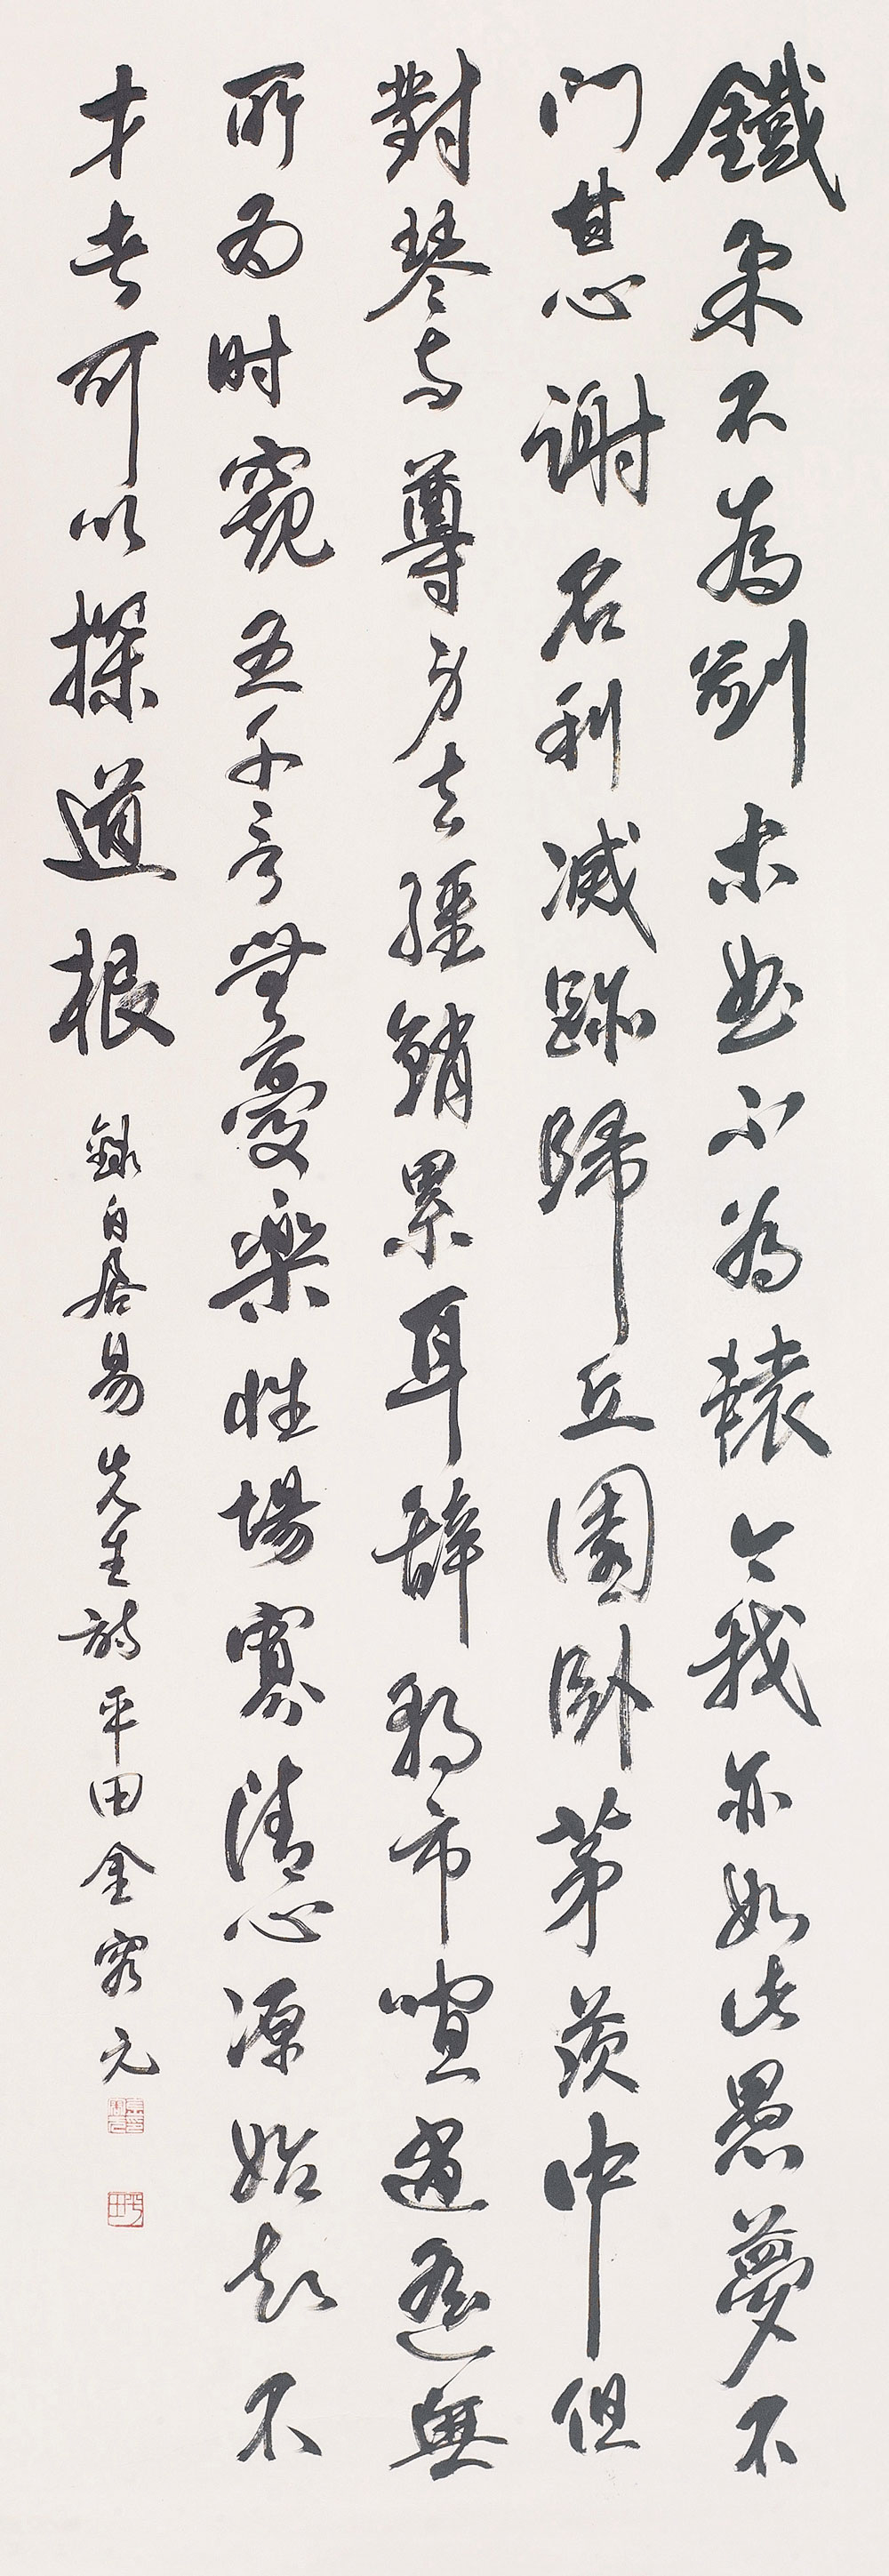 鐵柔不為劍木曲不為轅今我亦如此愚夢不
門甘心謝名利滅跡歸丘園臥茅茨中但
對琴與尊身去繮鎖累耳辭朝市喧逍遙無
所為时窺五千言無憂楽性場寡清心源始知不
才者可以探道根 錄白居易先生詩 平田金容元
平田